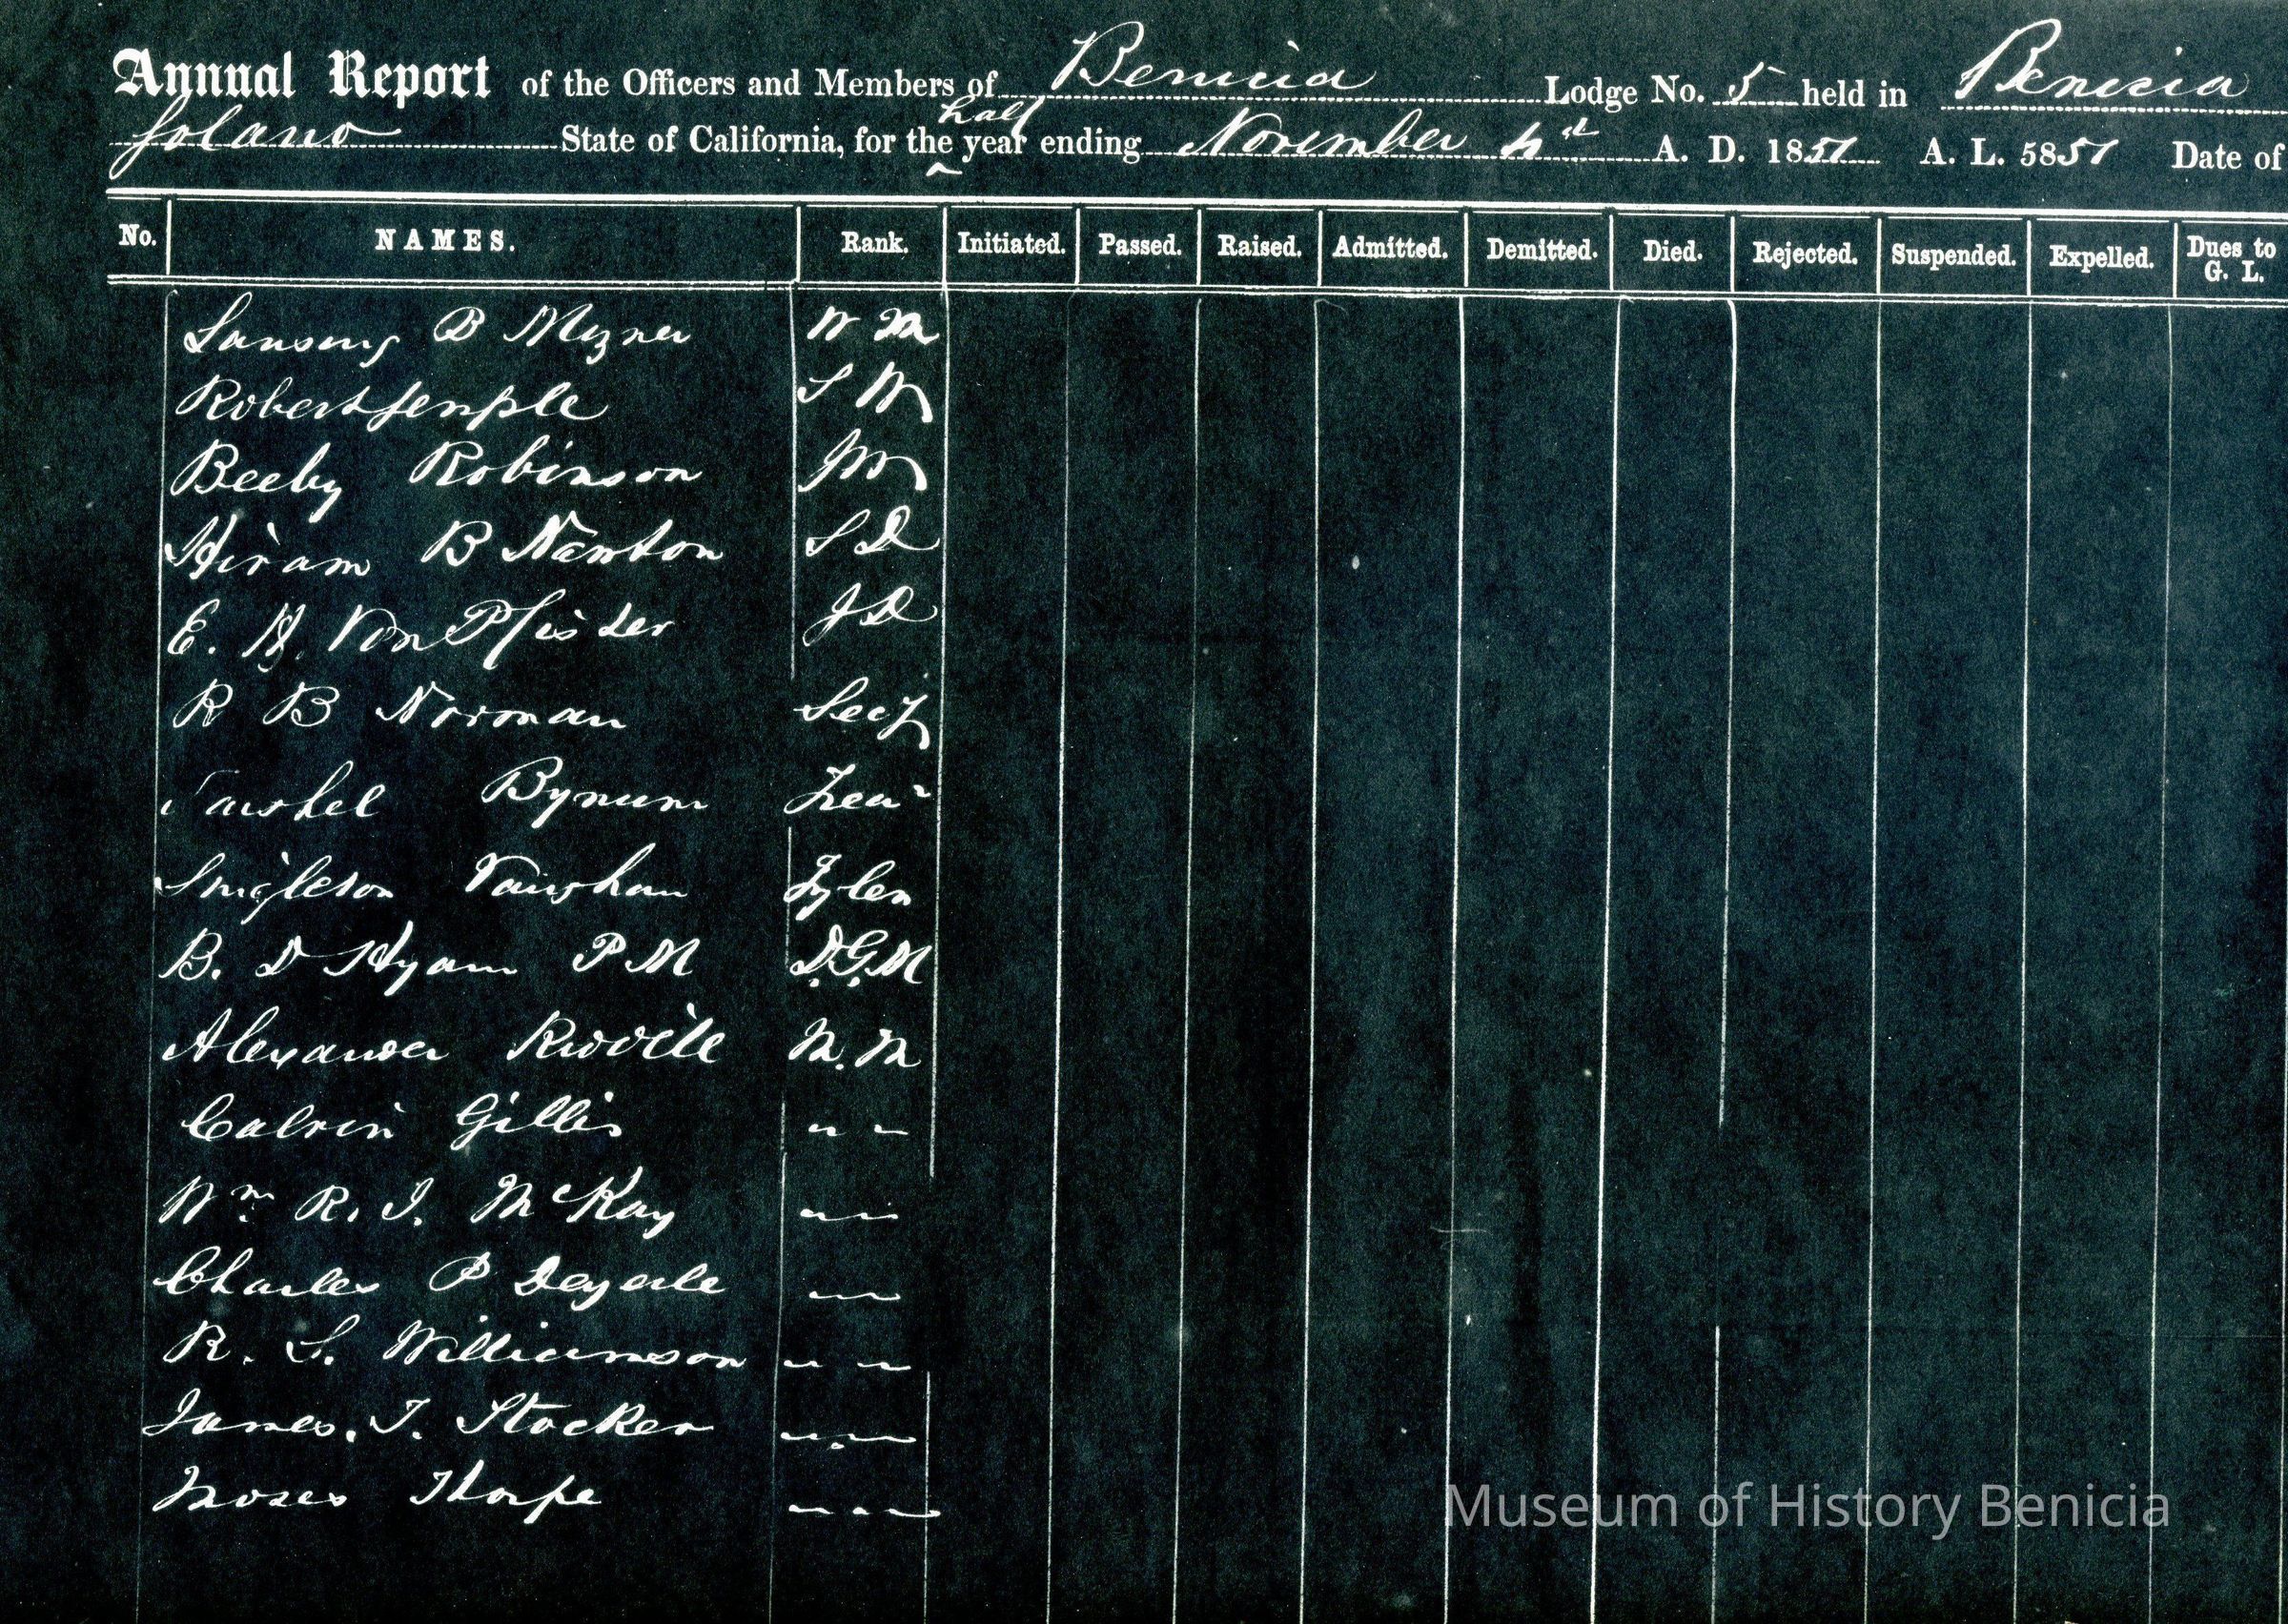 Annual Report of the Officers and Members of Benicia Lodge No. 5 held in Benicia
half
Solano State of California, for the year ending November A. D. 1851 A. L. 5851 Date of
No. NAMES. Rank. Initiated. Passed. Raised. Admitted. Demitted. Died. Rejected. Suspended. Expelled. Dues to G. L.
Lansing B Mizner W M
Robert Semple S W
Beeby Robinson J W
Hiram B Newton S D
E. H. Von Pfister J D
R B Norman Secy
Bynum Trear
Singleton Vaughan Tyler
B. D Hyam P M D.G.M
Alexander M. M
Calvin Gillis " "
Wm R. I. McKay " "
Charles P Deyerle " "
R. S. Williamson " "
James. T. Stocker " "
Moses Thorpe " "
Museum of History Benicia